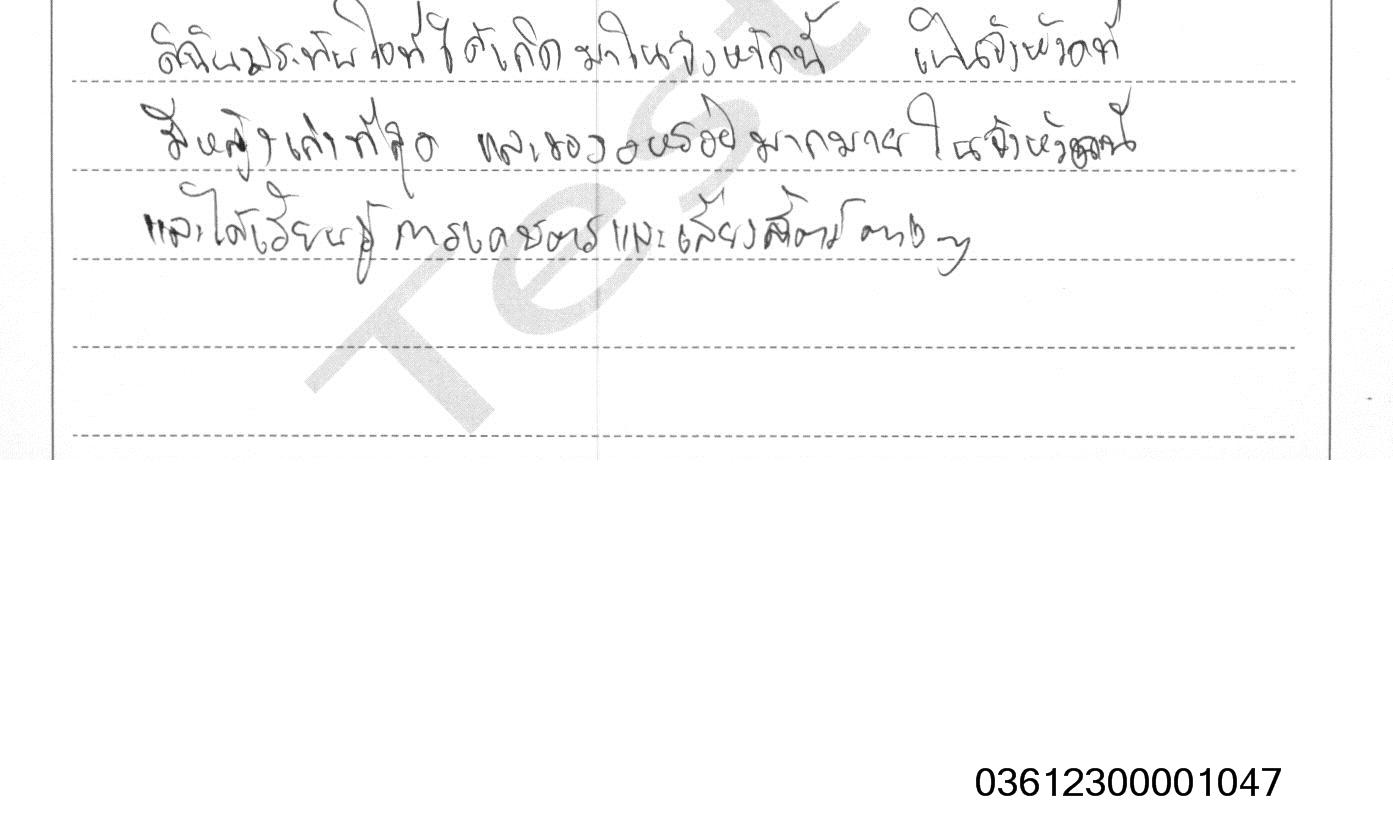 ดิฉันประทับใจที่ได้เกิดมาในจังหวัดนี้ เป็นจังหวัดที่
มีหญิงเก่าที่สุด และของอหร่อยมากมายในจังหวัดนี้
และได้เรียนรู้การเกษตรและเลี้ยงสัตว์ต่างๆ
Test
03612300001047